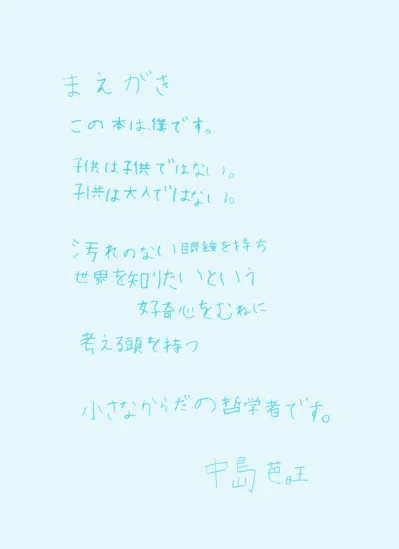 まえがき
この本は、僕です。
子供は子供ではない。
子供は大人ではない。
汚れのない眼線を持ち
世界を知りたいという
好奇心をむねに
考える頭を持つ
小さなからだの哲学者です。
中島芭旺